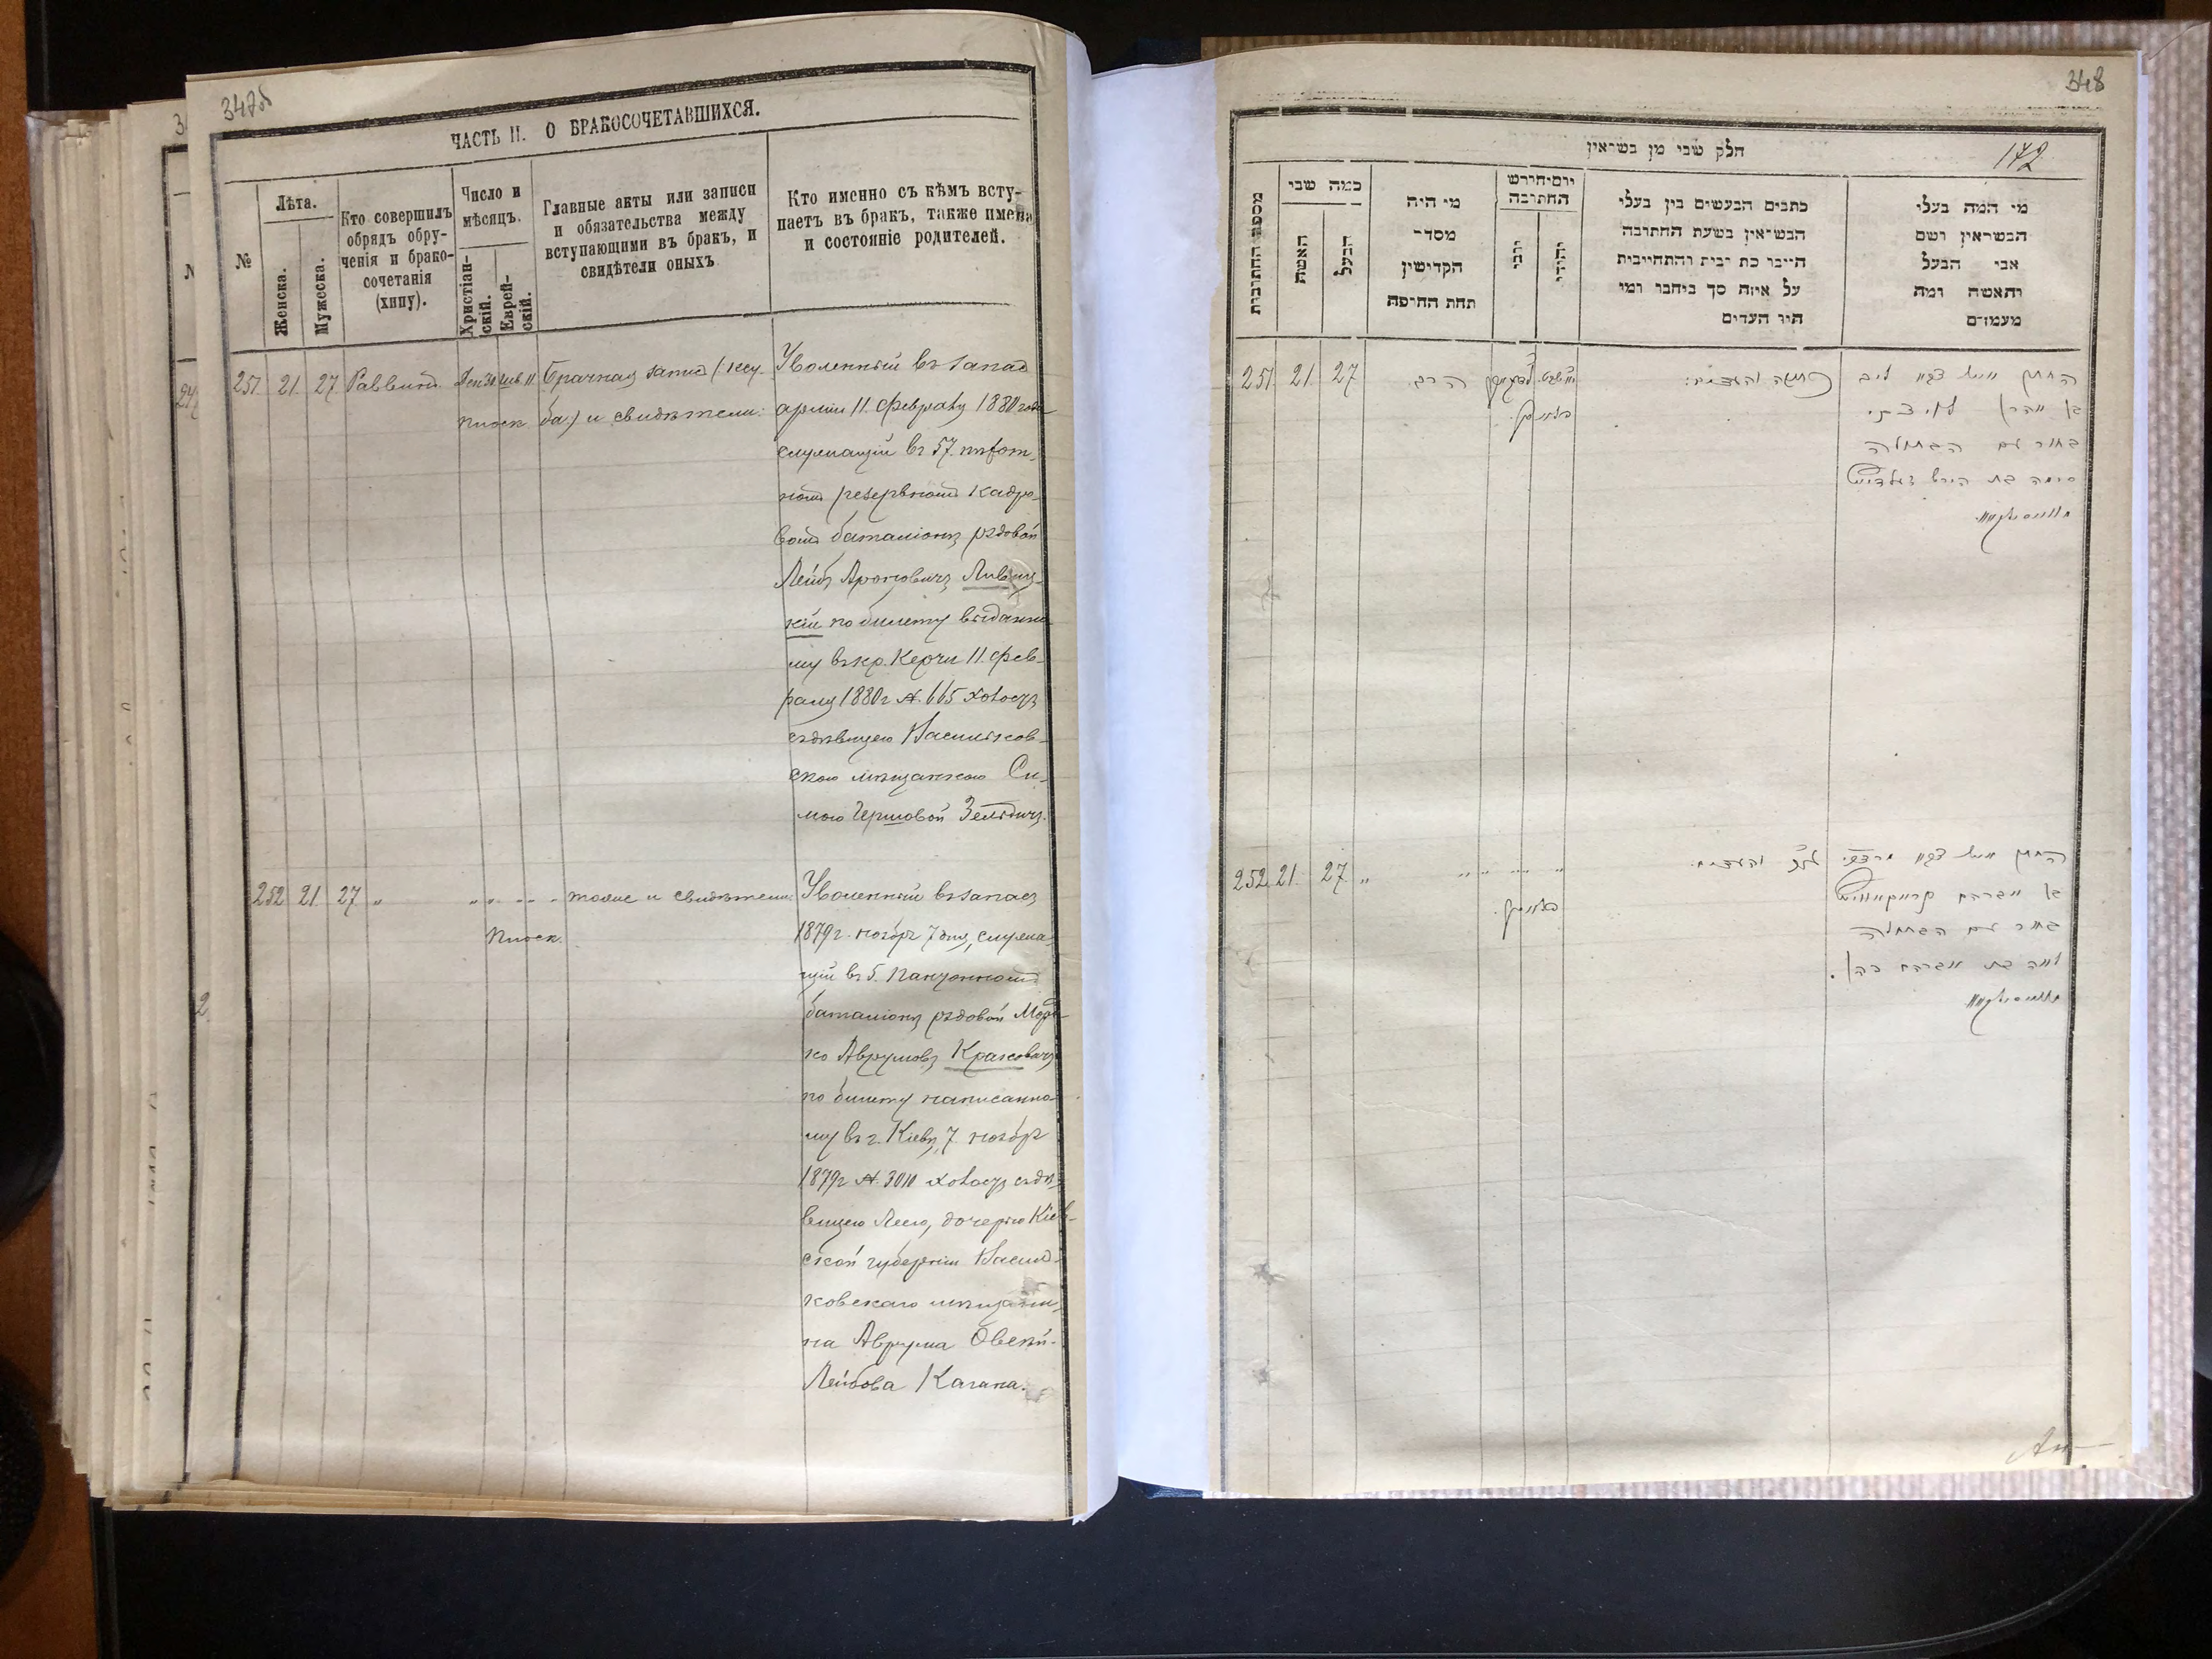 347об
ЧАСТЬ II. О БРАКОСОЧЕТАВШИХСЯ.
№
Лѣта.
Женска.
Мужеска.
Кто совершилъ
обрядъ обру-
ченія и брако-
сочетанія
(хипу).
Число и
мѣсяцъ.
Христіан-
скій.
Еврей-
скій.
Главные акты или записи
и обязательства между
вступающими въ бракъ, и
свидѣтели оныхъ
Кто именно съ кѣмъ всту-
паетъ въ бракъ, также имена
и состояніе родителей.
251. 21. 27. Раввинъ. Дек 30 11 Брачная запись (ксу-
ба:) и свидѣтели:
Уволенный въ запасъ
арміи 11. февраля 1880 года
служащій въ 57. пѣхот-
номъ резервномъ кадро-
вомъ баталіонѣ рядовой
Лейбъ Ароновичъ Ливиц-
кій по билету выданно-
му въ кр. Керчи 11. фев-
раля 1880 г. №. 665 холостъ
съ дѣвицею Васильков-
скою мѣщанкою Си-
мою Гершовой Зельдичъ.
252 21. 27 " " " тоже и свидѣтели.
Уволенный въ запасъ
1879 г. ноября 7 дня, служа-
щій въ 5. понтонномъ
баталіонѣ рядовой Морд-
ко Аврумовъ Краковичъ
по билету написанно-
му въ г. Кіевѣ, 7. ноября
1879 г. №. 3010 холостъ съ дѣ-
вицею Леею, дочерью Кіев-
ской губерніи Василь-
ковскаго мѣщани-
на Аврума Овсей-
Лейбова Кагана.
348
172
חלק שני מן הנשואין
מספר החתונות
כמה שני
האשה
הבעל
מי היה
מסדר
הקדישין
תחת החופה
יום וחודש
החתונה
יהודי
כתבים הנעשים בין בעלי
הנשואין בשעת החתונה
היינו כת ובית והתחייבית
על איזה סך ביחבו ומי
היו העדים
מי המה בעלי
הנשואין ושם
אבי הבעל
והאשה ומה
מעמדם
251. 21. 27 הרב.
כתובה והעדים:
בן אהרן
בחור עם הבתולה
סימה בת הירש
252. 21. 27 " " "
והעדים.
בן אברהם
בחור עם הבתולה
לאה בת אברהם כהן.